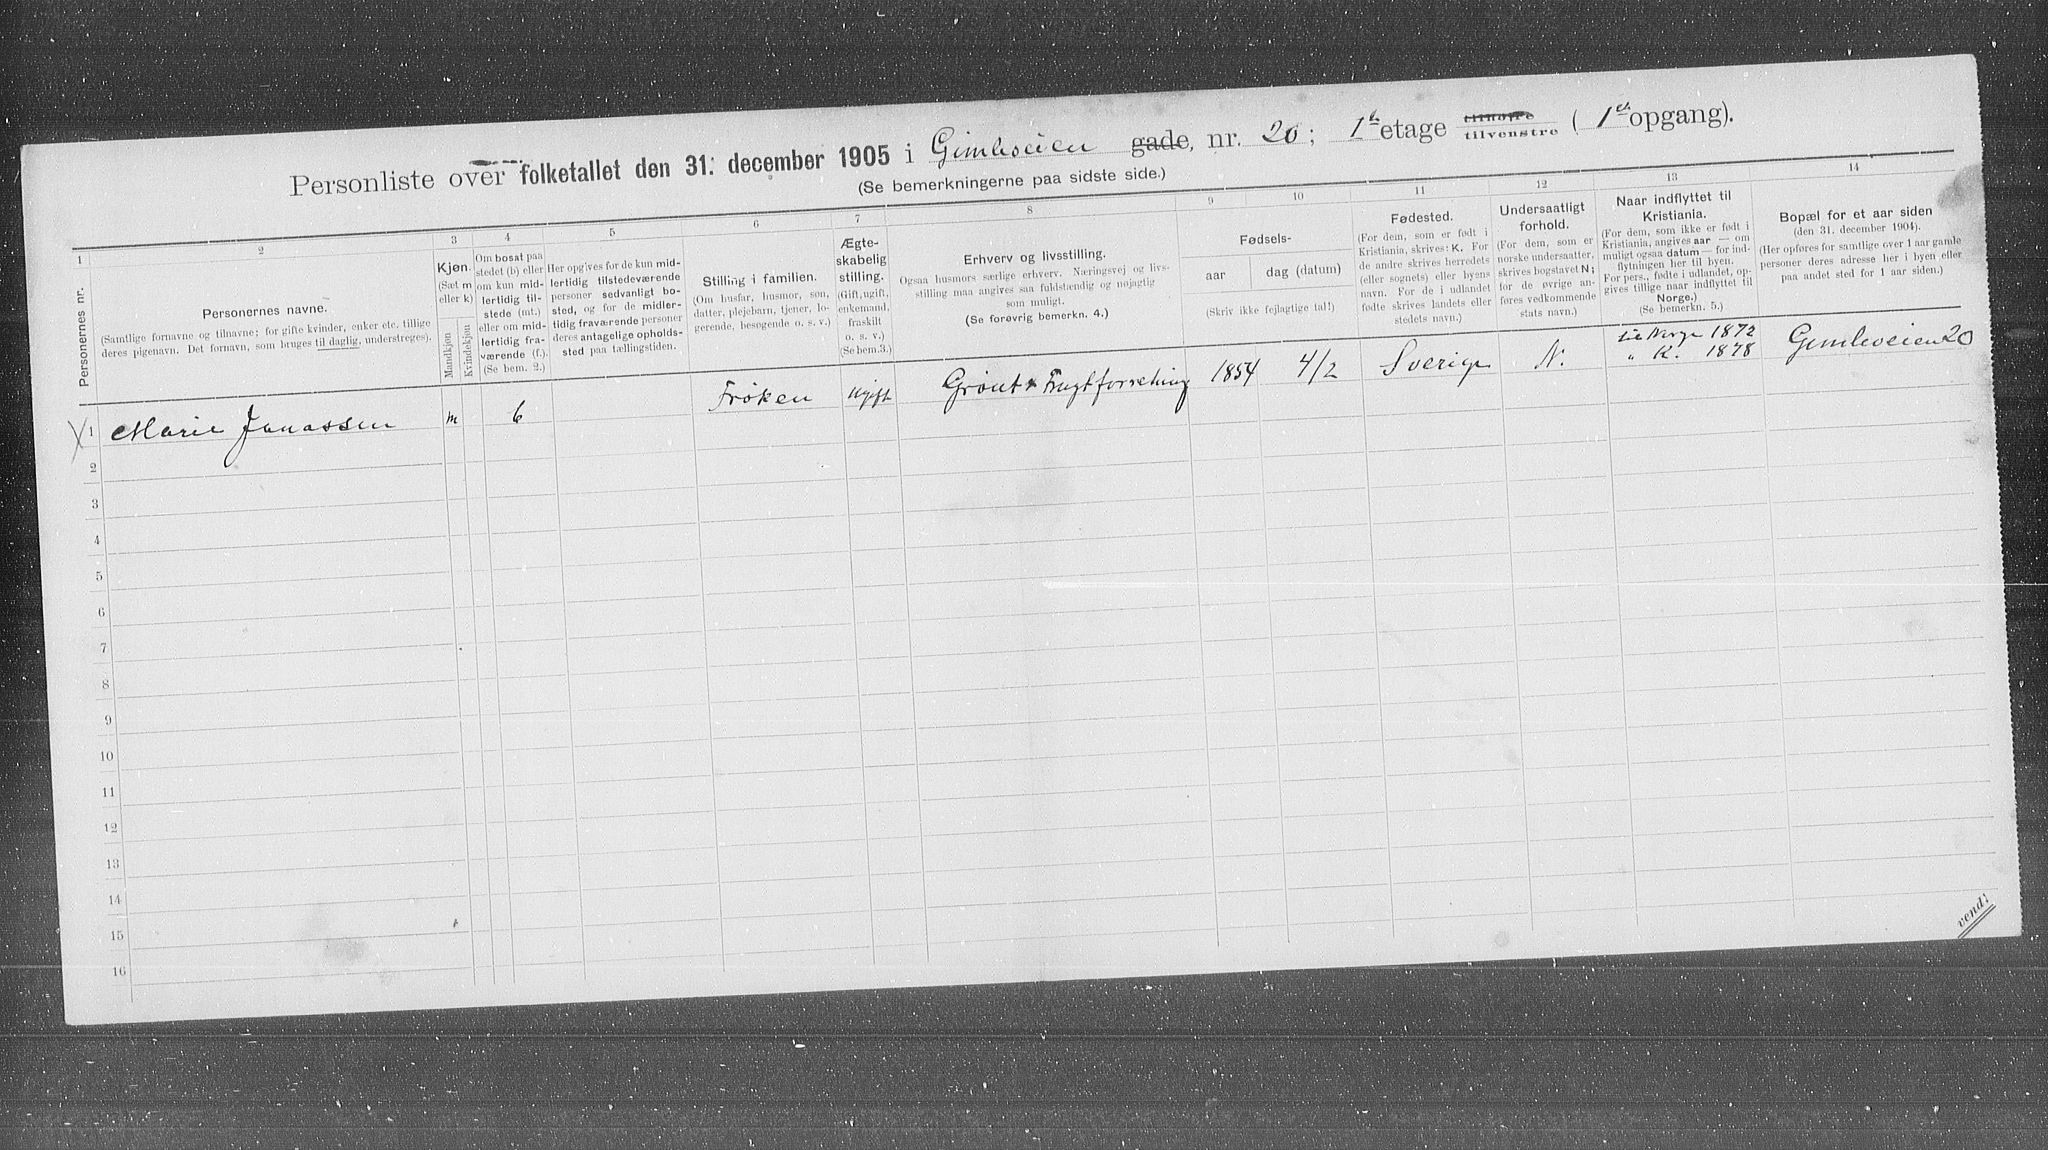 Personliste over folketallet den 31. december 1905 i Gimleveien gade, nr. 20; 1ste etage tilhøire tilvenstre (1ste opgang).
(Se bemerkningerne paa sidste side.)
1 2 3 4 5 6 7 8 9 10 11 12 13 14
Personernes nr.
Personernes navne.
(Samtlige fornavne og tilnavne; for gifte kvinder, enker etc. tillige
deres pigenavn. Det fornavn, som bruges til daglig, understreges).
Kjøn.
(Sæt m
eller k)
Mandkjøn
Kvindekjøn
Om bosat paa
stedet (b) eller
om kun mid-
lertidig til-
stede (mt.)
eller om mid-
lertidig fra-
værende (f.)
(Se bem. 2.)
Her opgives for de kun mid-
lertidig tilstedeværende
personer sedvanlig bo-
sted, og for de midler-
tidig fraværende personer
deres antagelige opholds-
sted paa tællingstiden.
Stilling i familien.
(Om husfar, husmor, søn,
datter, plejebarn, tjener, lo-
gerende, besøgende o. s. v.)
Ægte-
skabelig
stilling.
(Gift, ugift,
enkemand,
fraskilt
o. s. v.)
(Se bem. 3.)
Erhverv og livsstilling.
Ogsaa husmors særlige erhverv. Næringsvej og livs-
stilling maa angives saa fuldstændig og nøjagtig
som muligt.
(Se forøvrig bemerkn. 4.)
Fødsels-
aar
dag (datum)
(Skriv ikke fejlagtige tal!)
Fødested.
(For dem, som er født i
Kristiania, skrives: K. For
de andre skrives herredets
(eller sognets) eller byens
navn. For de i udlandet
fødte skrives landets eller
stedets navn.)
Undersaatligt
forhold.
(For dem, som er
norske undersaatter,
skrives bogstavet N;
for de øvrige an-
føres vedkommende
stats navn.)
Naar indflyttet til
Kristiania.
(For dem, som ikke er født i
Kristiania, angives aar — om
muligt ogsaa datum — for ind-
flytningen her til byen.
For pers., fødte i udlandet, op-
gives tillige naar indflyttet til
Norge.)
(Se bemerkn. 5.)
Bopæl for et aar siden
(den 31. december 1904).
(Her opføres for samtlige over 1 aar gamle
personer deres adresse her i byen eller
paa andet sted for 1 aar siden.)
1 Marie Janassen m b Frøken ugift Grønt & Frugtforretning 1854 4/2 Sverige N. til Norge 1872
" K. 1878
Gimleveien 20
2
3
4
5
6
7
8
9
10
11
12
13
14
15
16
vend!